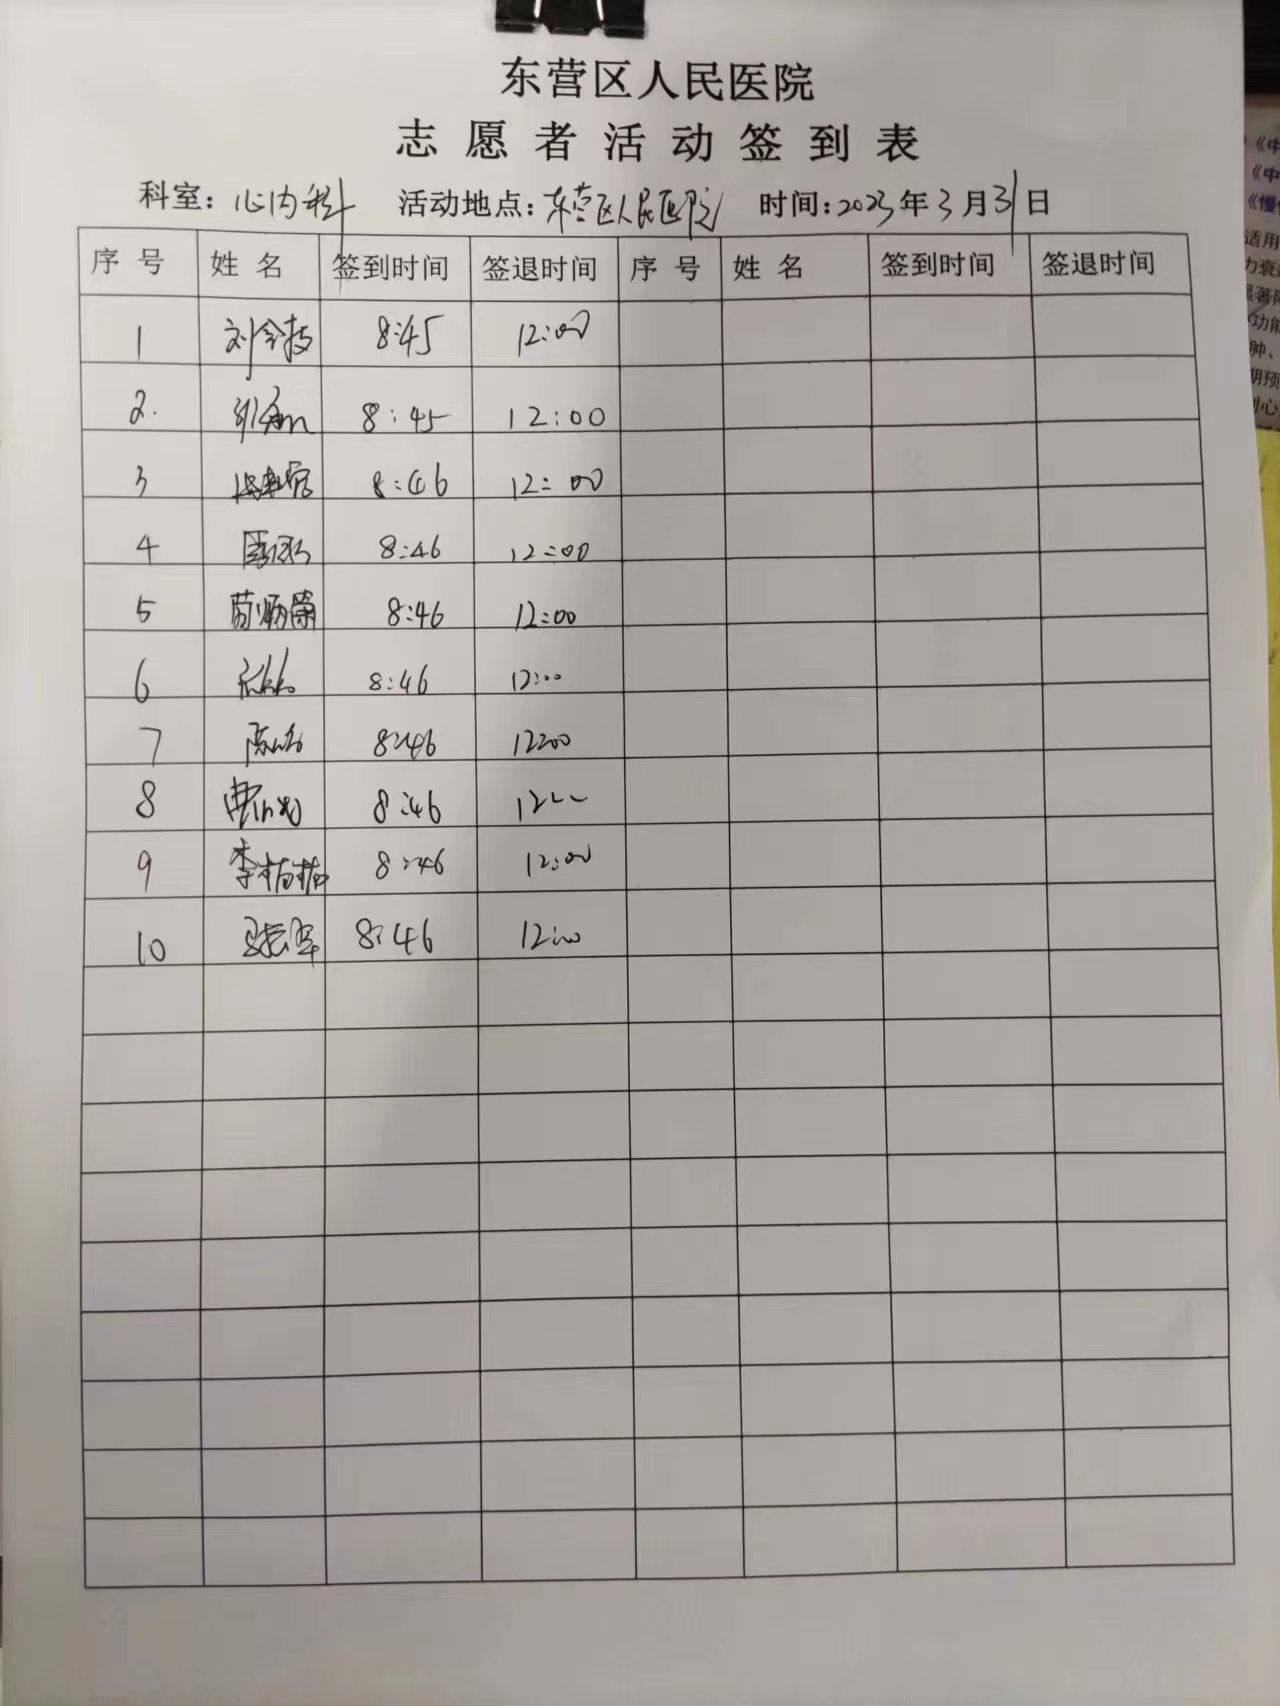 东营区人民医院
志愿者活动签到表
科室：心内科 活动地点：东营区人民医院 时间：2023年3月31日
序号 姓名 签到时间 签退时间 序号 姓名 签到时间 签退时间
1 8:45 12:00
2. 8:45 12:00
3 8:46 12:00
4 8:46 12:00
5 苗炳荣 8:46 12:00
6 8:46 12:00
7 8:46 12:00
8 8:46
9 李楠楠 8:46 12:00
10 8:46 12:00
《中
《中
《慢
适用
力衰
显著
功能
肿、
期预
心